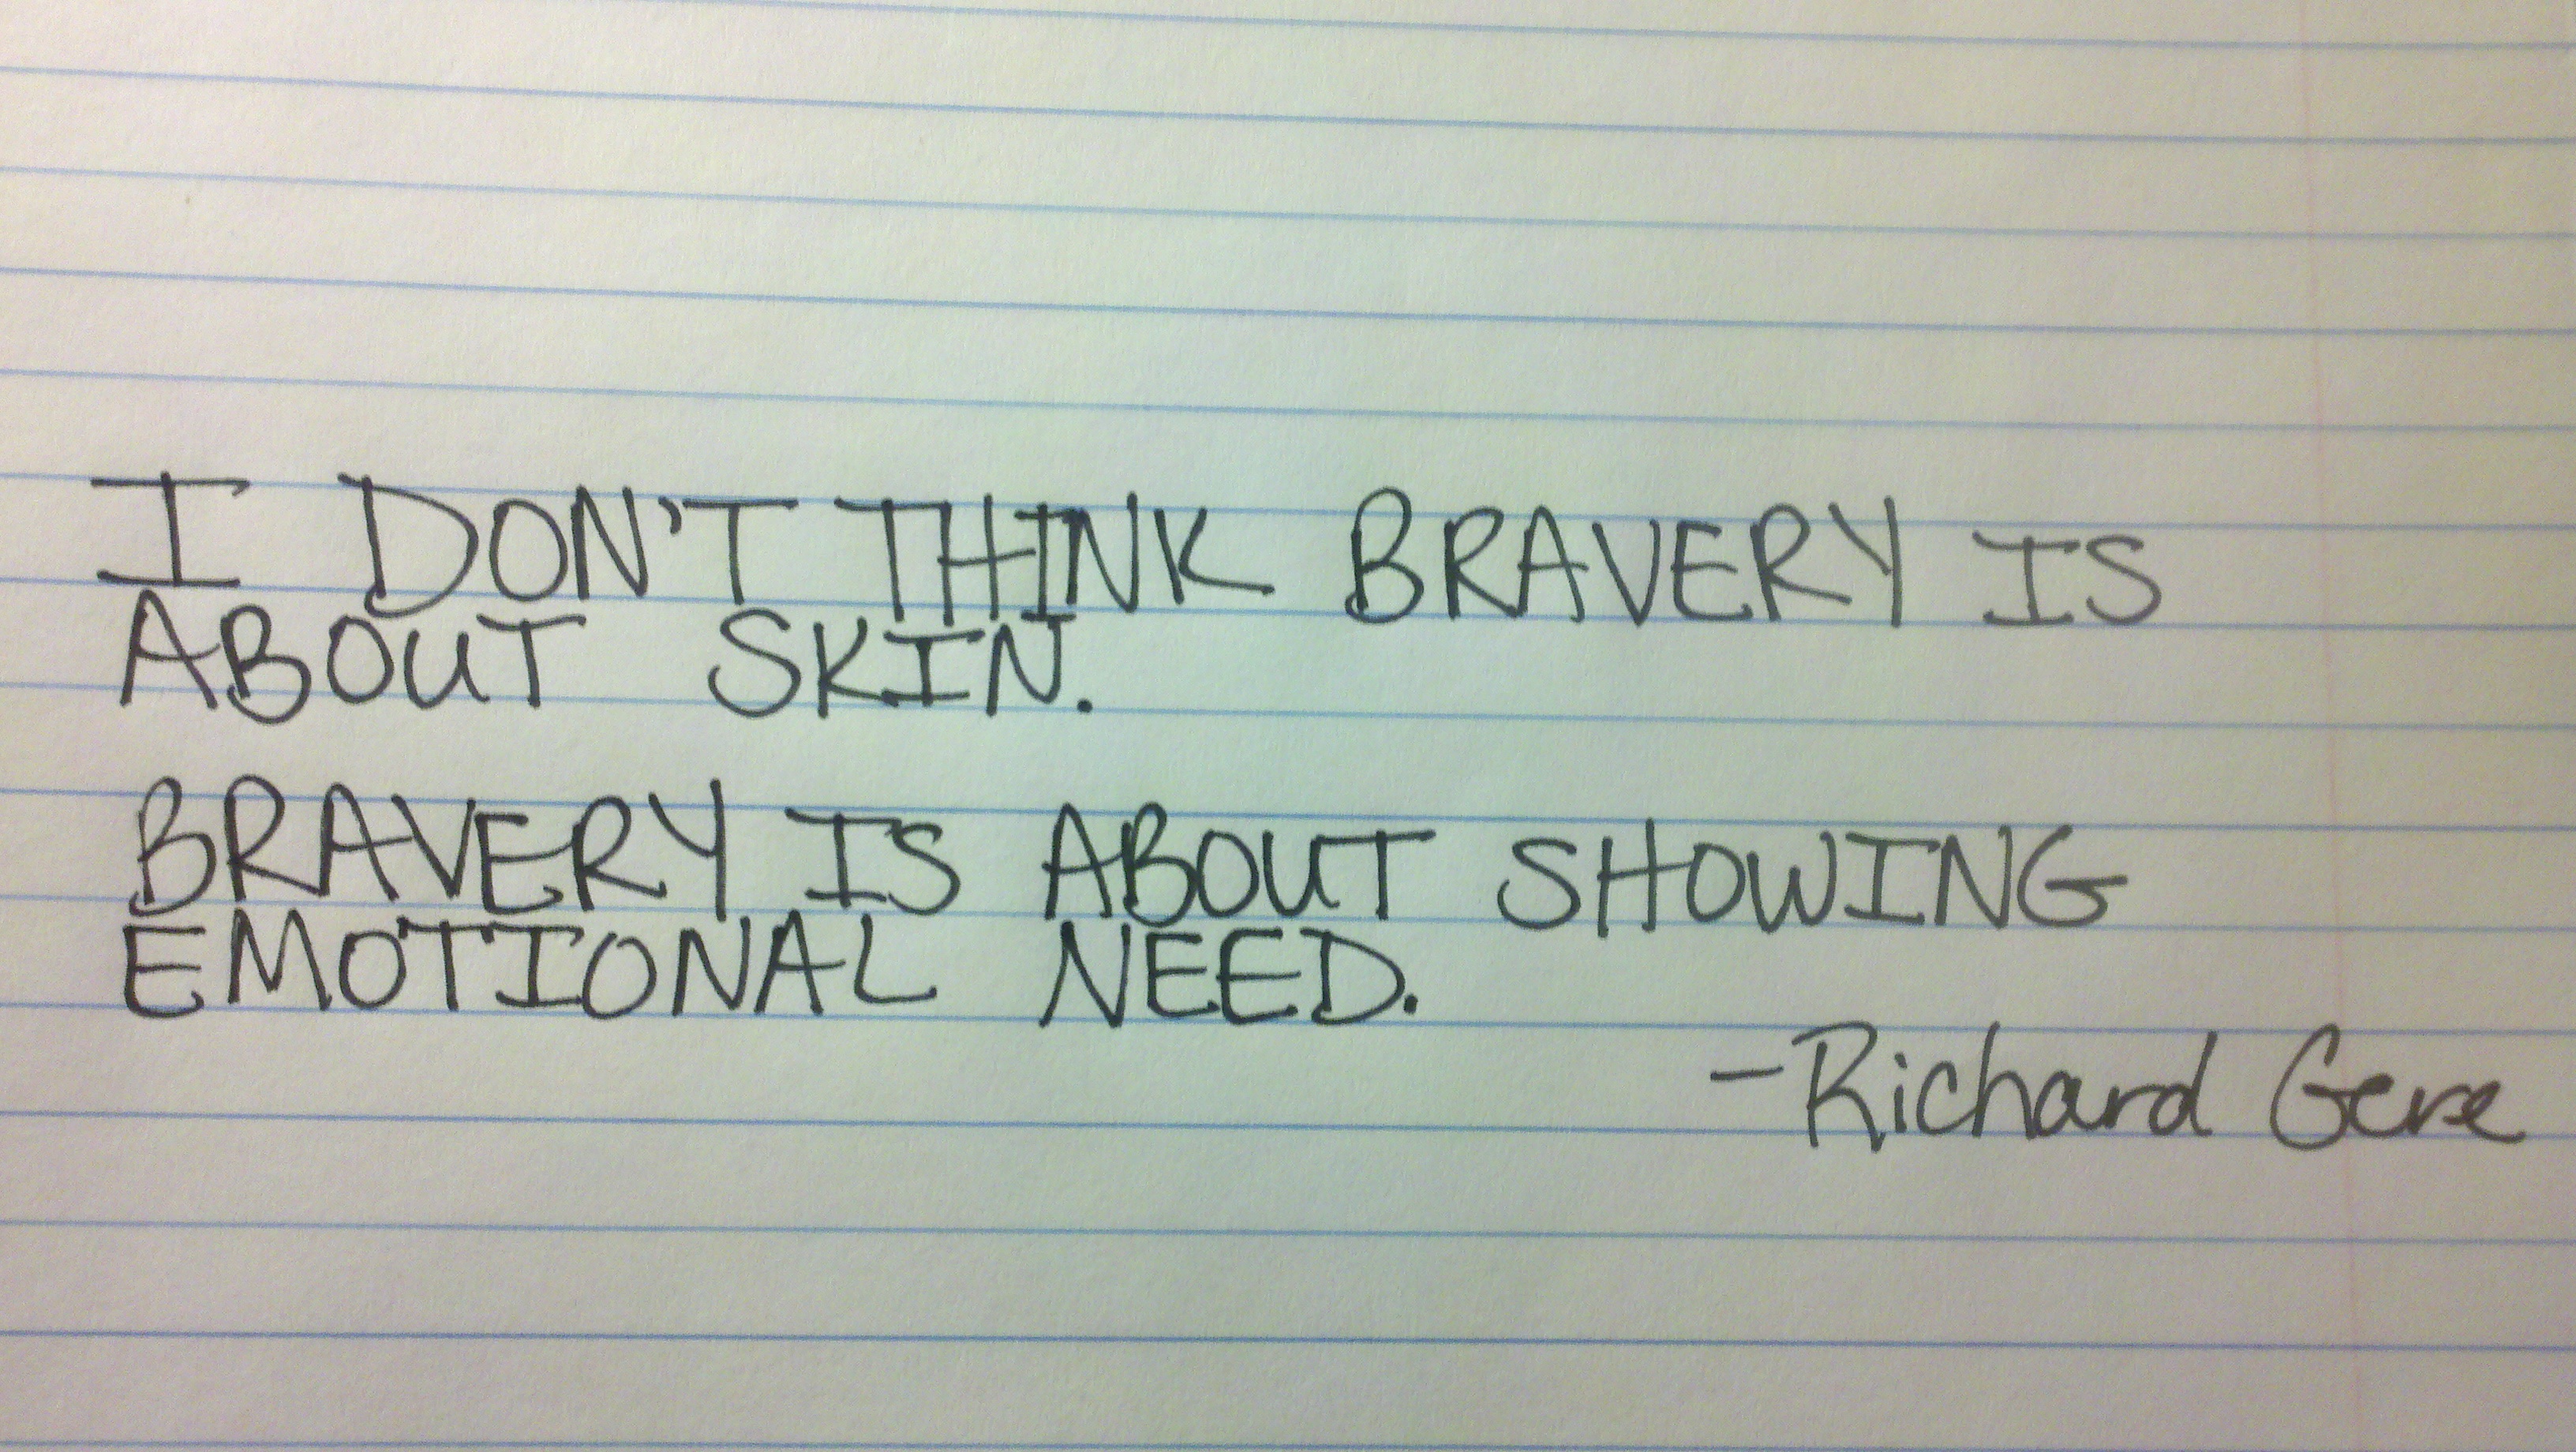 I DON'T THINK BRAVERY IS
ABOUT SKIN.
BRAVERY IS ABOUT SHOWING
EMOTIONAL NEED.
-Richard Gere